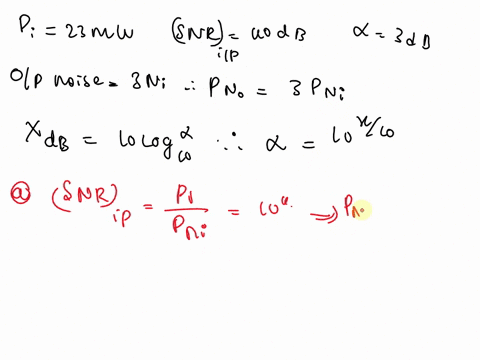 Pi = 23 mW (SNR)i/p = 40 dB α = 3 dB
O/p noise = 3Ni ∴ PNo = 3 PNi
XdB = 10 log10 α ∴ α = 10^x/10
ⓐ (SNR)ip = Pi/Pni = 10^4 ⇒ Pn.